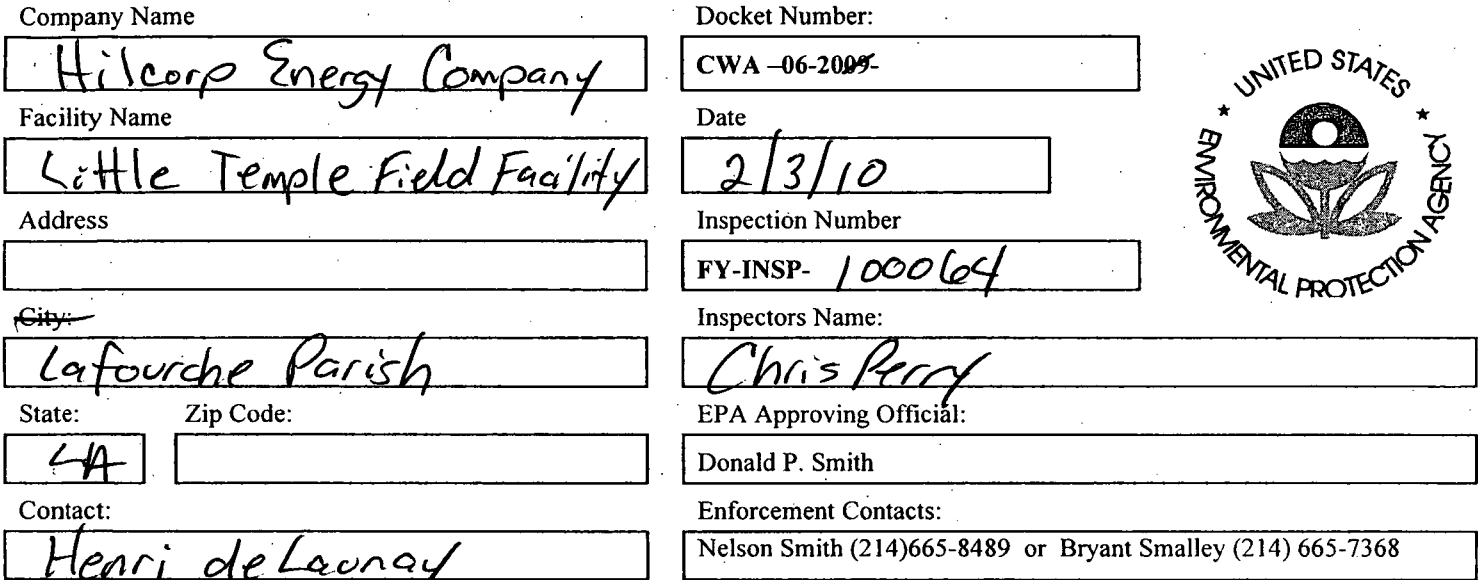 Company Name
Hilcorp Energy Company
Facility Name
Little Temple Field Facility
Address
City:
Lafourche Parish
State: Zip Code:
LA
Contact:
Henri de Launay
Docket Number:
CWA –06-2009-
Date
2/3/10
Inspection Number
FY-INSP- 100064
Inspectors Name:
Chris Perry
EPA Approving Official:
Donald P. Smith
Enforcement Contacts:
Nelson Smith (214)665-8489 or Bryant Smalley (214) 665-7368
UNITED STATES
ENVIRONMENTAL PROTECTION AGENCY